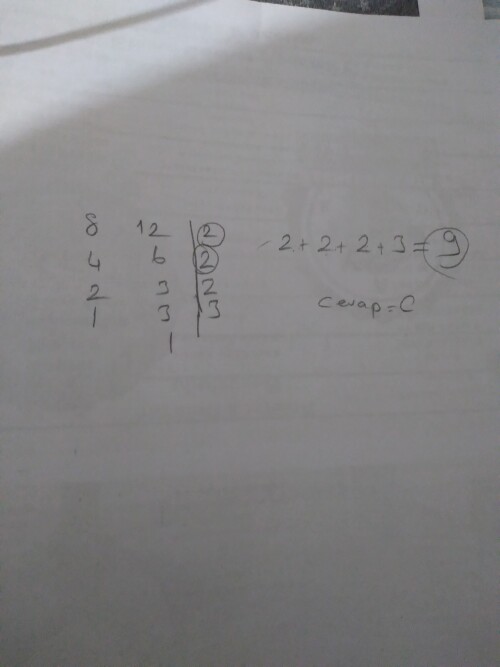 8 12 | 2
4 6 | 2
2 3 | 2
1 3 | 3
1
2+2+2+3=9
Cevap=C